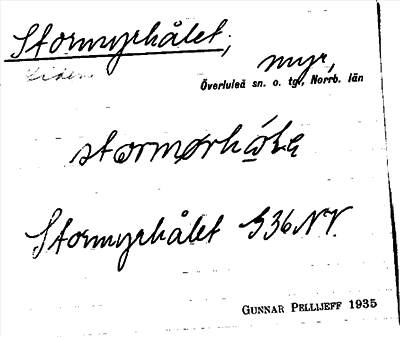 Stormyrhålet,
myr,
Överluleå sn. o. tg., Norrb. län
Stormyrhålet G36NV.
GUNNAR PELLIJEFF 1935